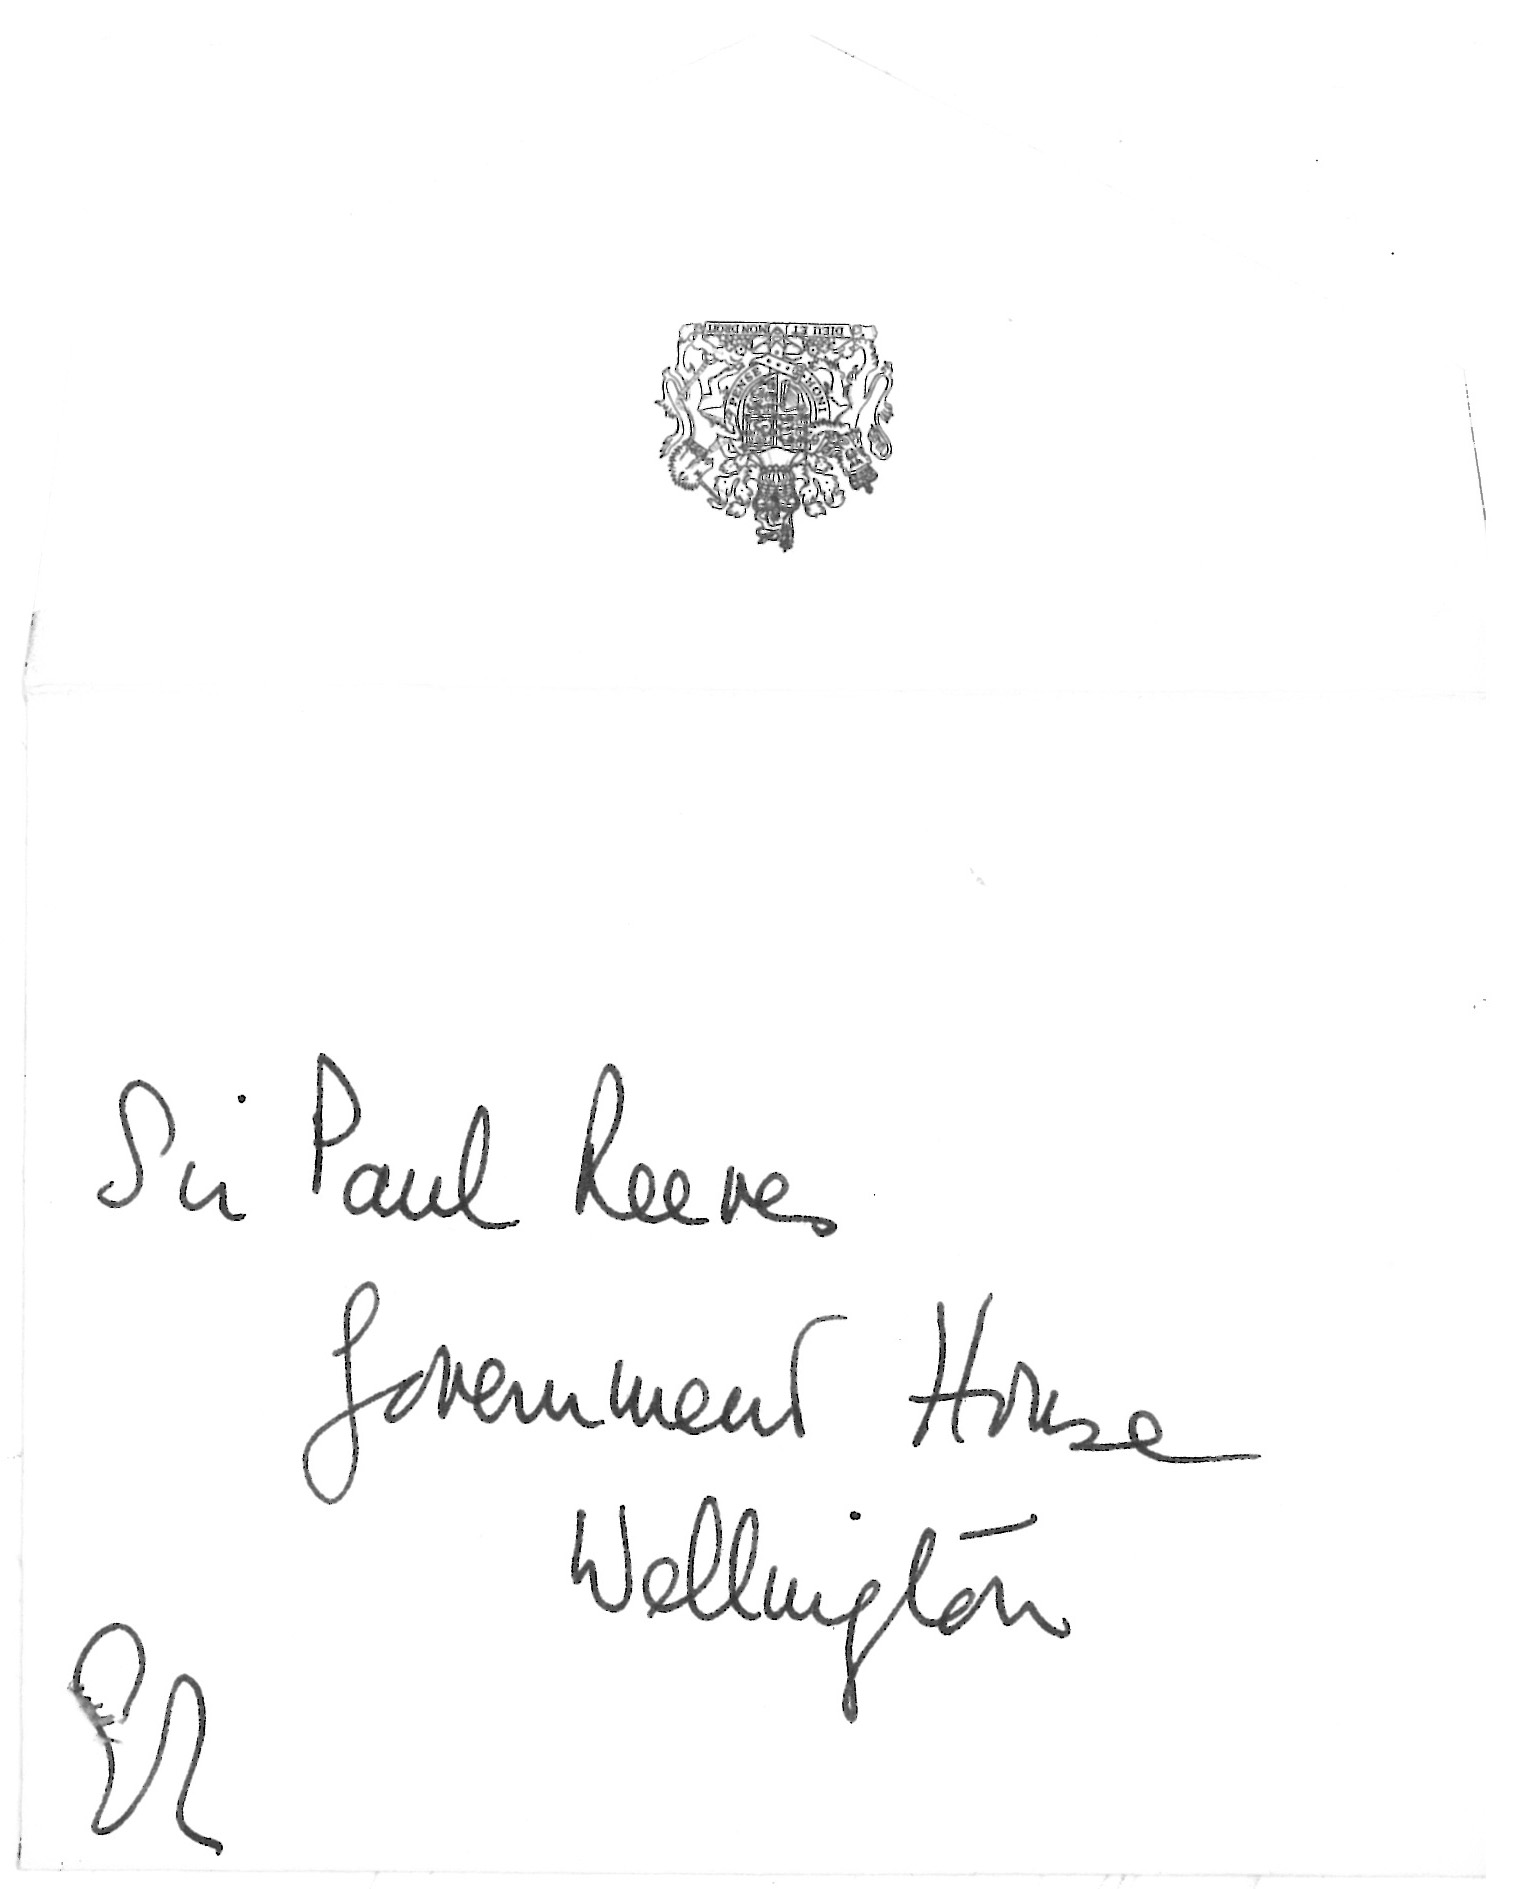 DIEU ET MON DROIT
HONI PENSE
Sir Paul Reeves
Government House
Wellington